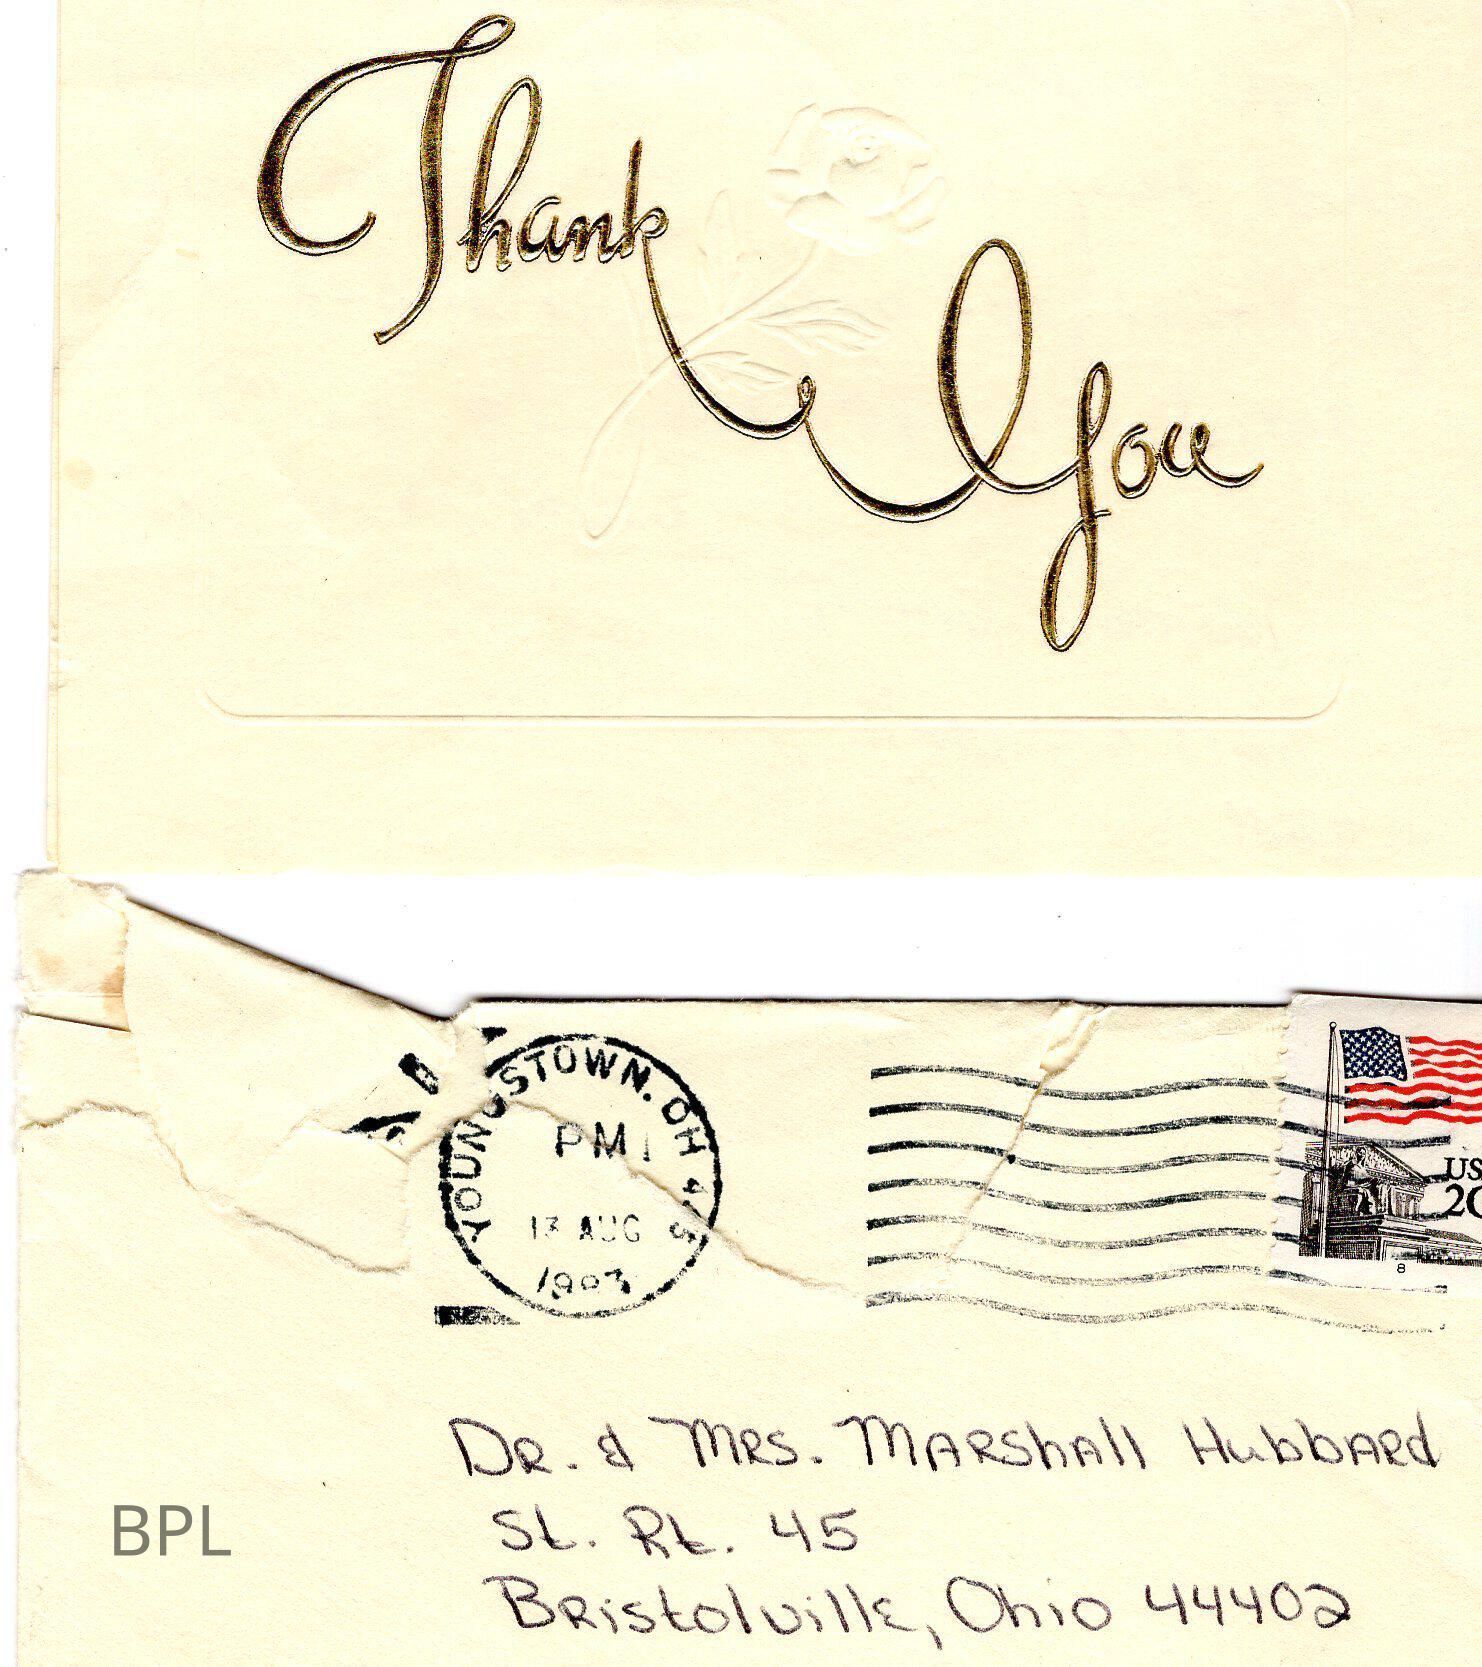 Thank
You
YOUNGSTOWN. OH
PM
13 AUG
US
8
DR. & MRS. MARShall HubbARd
St. Rt. 45
BRistolville, Ohio 44402
BPL